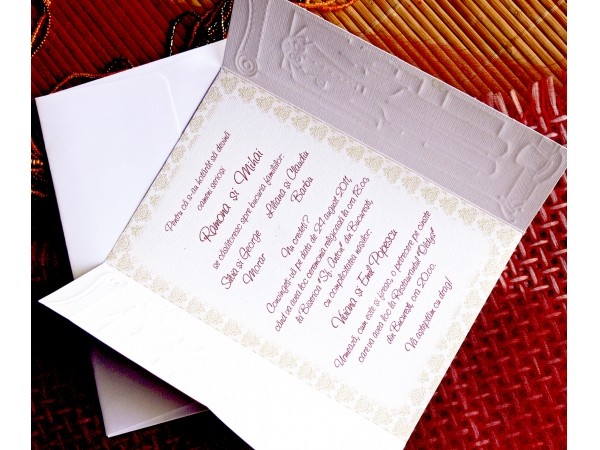 Pentru că s-au hotărât să devină
oameni serioși
Ramona și Mihai
se căsătoresc spre bucuria familiilor:
Silvia și George
Morar
Liliana și Claudiu
Barbu
Nu credeți?
Convingeți-vă pe data de 21 august 2011,
când va avea loc ceremonia religioasă la ora 18.00,
la Biserica "Sf. Anton" din București,
cu complicitatea nașilor:
Viviana și Emil Popescu
Urmează, cum este și firesc, o petrecere pe cinste
care va avea loc la Restaurantul
din București, ora 20.00.
Vă așteptăm cu drag!